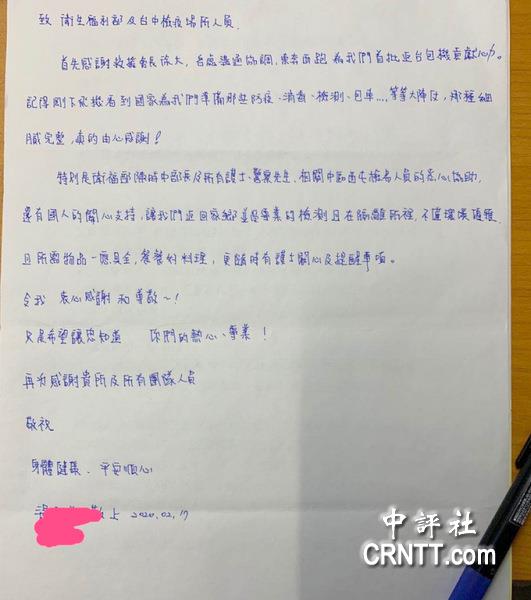 致 衛生福利部及台中檢疫場所人員.
首先感謝救援會長徐太,各處溝通協調,東奔西跑為我們首批返台包機貢獻心力.
記得剛下飛機看到國家為我們準備那些防疫、消毒、檢測、包車....等等大陣仗,那種細
膩完整,真的由心感謝!
特別是衛福部陳時中部長及所有護士、警察先生,相關中區西屯檢者人員的悉心協助,
還有國人的關心支持,讓我們返回家鄉並是專業的檢測且在隔離所裡,不僅環境優雅
且所需物品一應具全,餐餐好料理,更隨時有護士關心及提醒事項。
令我 衷心感謝 和尊敬~!
只是希望讓您知道 你們的熱心、專業!
再次感謝貴所及所有團隊人員
敬祝
身體健康、平安順心
敬上 2020.02.17
中評社
CRNTT.com